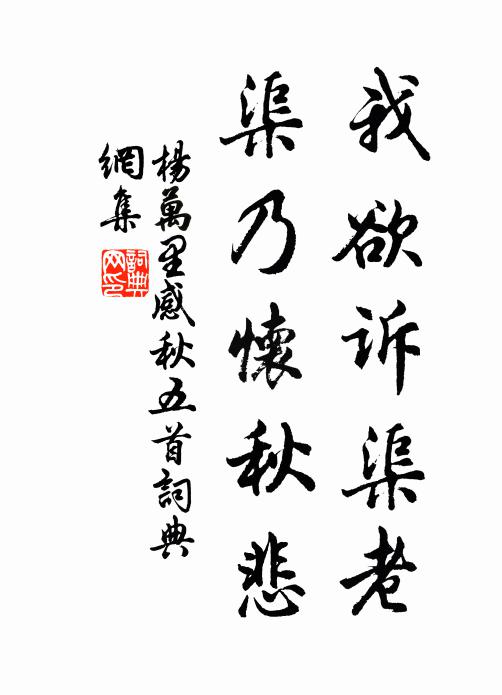 我欲訴渠老
渠乃懷秋悲
楊萬里感秋五首詞典
網集
詞典
网印